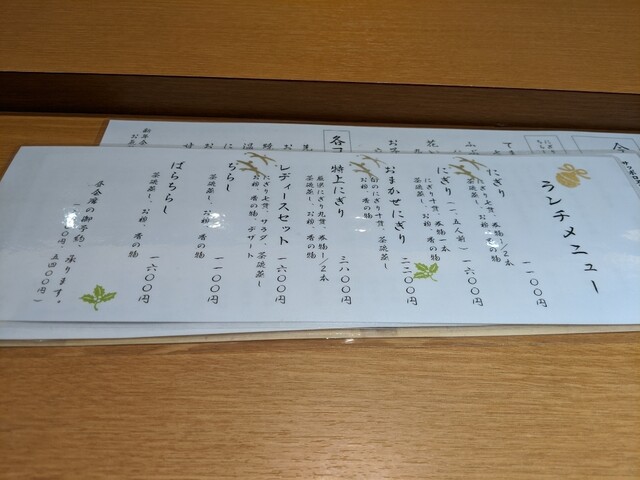 ランチメニュー
にぎり
にぎり七貫、巻物1/2本
茶碗蒸し、お椀、香の物
一一〇〇円
にぎり(一、五人前)
にぎり十貫、巻物一本
茶碗蒸し、お椀、香の物
一六〇〇円
おまかせにぎり
旬のにぎり十貫、茶碗蒸し
お椀、香の物
二二〇〇円
特上にぎり
厳選にぎり九貫、巻物1/2本
茶碗蒸し、お椀、香の物
三八〇〇円
レディースセット
にぎり七貫、サラダ、茶碗蒸し
お椀、香の物、デザート
一六〇〇円
ちらし
茶碗蒸し、お椀、香の物
一一〇〇円
ばらちらし
茶碗蒸し、お椀、香の物
一六〇〇円
昼会席の御予約、承ります。
〇円、五四〇〇円)
今
各コ